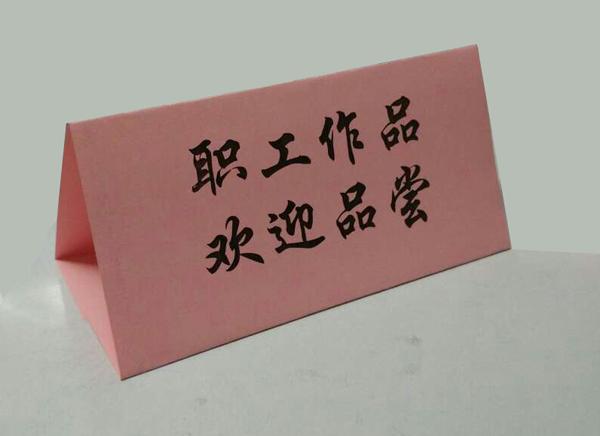 职工作品
欢迎品尝